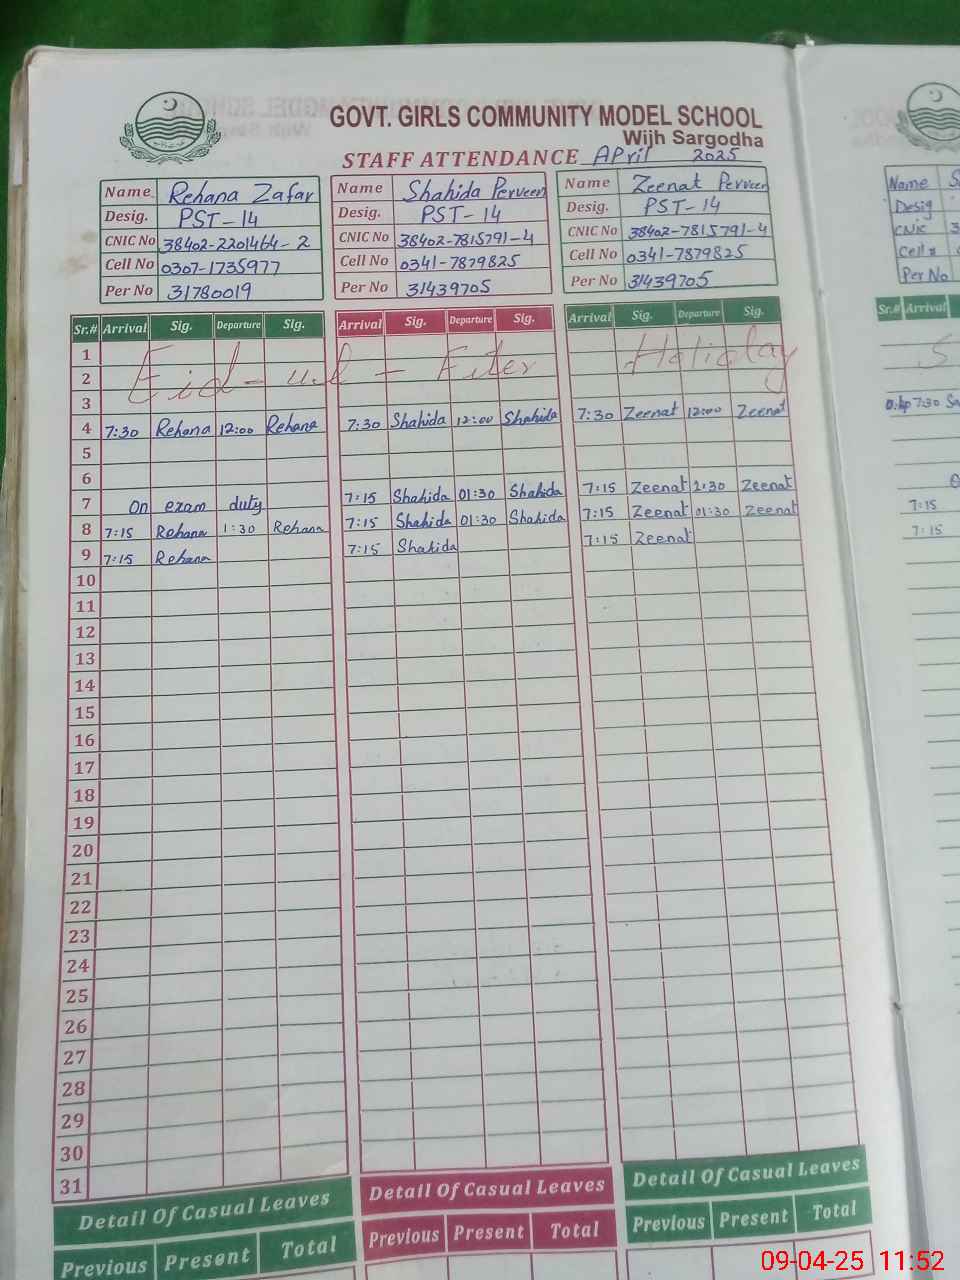 GOVT. GIRLS COMMUNITY MODEL SCHOOL
Wijh Sargodha
STAFF ATTENDANCE April 2025
Name Rehana Zafar
Desig. PST-14
CNIC No 38402-2201464-2
Cell No 0307-1735977
Per No 31780019
Name Shahida Perveen
Desig. PST-14
CNIC No 38402-7815791-4
Cell No 0341-7879825
Per No 31439705
Name Zeenat Perveen
Desig. PST-14
CNIC No 38402-7815791-4
Cell No 0341-7879825
Per No 31439705
Name S
Desig
CNIC 3
Cell #
Per No
Sr.# Arrival Sig. Departure Sig. Arrival Sig. Departure Sig. Arrival Sig. Departure Sig. Sr.# Arrival
1
Eid-ul-Fiter Holiday
2
3
4 7:30 Rehana 12:00 Rehana 7:30 Shahida 12:00 Shahida 7:30 Zeenat 12:00 Zeenat 7:30
5
6
7 On exam duty 7:15 Shahida 01:30 Shahida 7:15 Zeenat 1:30 Zeenat 7:15
8 7:15 Rehana 1:30 Rehana 7:15 Shahida 01:30 Shahida 7:15 Zeenat 01:30 Zeenat 7:15
9 7:15 Rehana 7:15 Shahida 7:15 Zeenat
10
11
12
13
14
15
16
17
18
19
20
21
22
23
24
25
26
27
28
29
30
31
Detail Of Casual Leaves Detail Of Casual Leaves Detail Of Casual Leaves
Previous Present Total Previous Present Total Previous Present Total
09-04-25 11:52